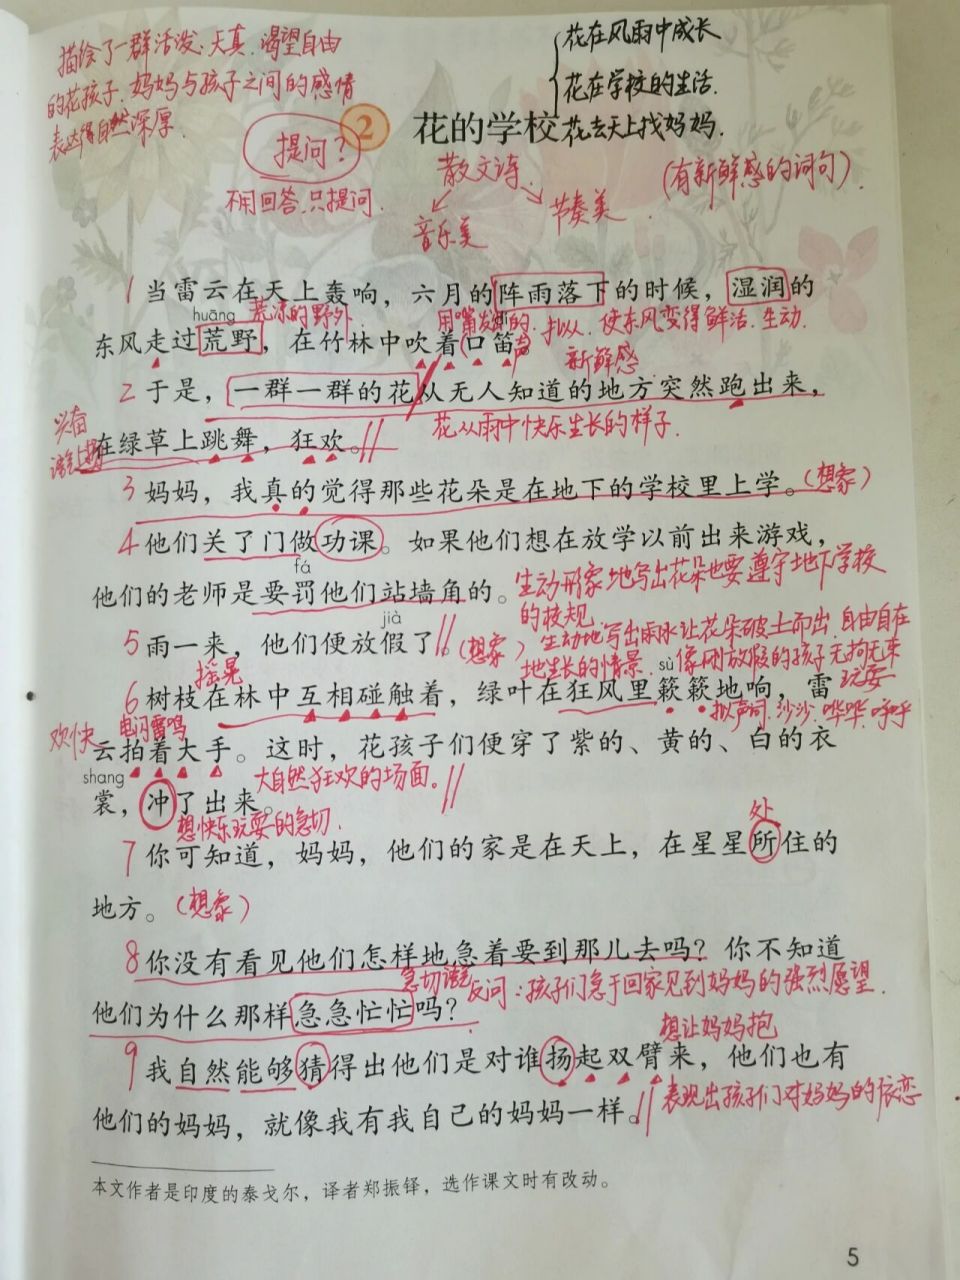 描绘了一群活泼、天真、渴望自由
的花孩子,妈妈与孩子之间的感情
表达得自然深厚.
花在风雨中成长
花在学校的生活.
花去天上找妈妈.
提问?
2 花的学校
不用回答.只提问.
散文诗
音乐美
节奏美
(有新鲜感的词句).
1 当雷云在天上轰响，六月的阵雨落下的时候，湿润的
huāng 荒凉的野外
dí
用嘴发声的.拟人.使东风变得鲜活.生动.
东风走过荒野，在竹林中吹着口笛。
新鲜感
2 于是，一群一群的花从无人知道的地方突然跑出来，
花从雨中快乐生长的样子.
兴奋
在绿草上跳舞，狂欢。
3 妈妈，我真的觉得那些花朵是在地下的学校里上学。(想象)
4 他们关了门做功课。如果他们想在放学以前出来游戏，
fá
他们的老师是要罚他们站墙角的。
生动形象地写出花朵也要遵守地下学校
的校规
jià
5 雨一来，他们便放假了。(想象)
生动地写出雨水让花朵破土而出.自由自在
地生长的情景.像刚放假的孩子无拘无束
玩耍
摇晃
sù
6 树枝在林中互相碰触着，绿叶在狂风里簌簌地响，雷
拟声词.沙沙.哗哗.呼呼
欢快
电闪雷鸣
云拍着大手。这时，花孩子们便穿了紫的、黄的、白的衣
shang
大自然狂欢的场面。
裳，冲了出来。
想快乐玩耍的急切.
处
7 你可知道，妈妈，他们的家是在天上，在星星所住的
地方。(想象)
8 你没有看见他们怎样地急着要到那儿去吗？你不知道
急切 反问:孩子们急于回家见到妈妈的强烈愿望.
他们为什么那样急急忙忙吗？
想让妈妈抱
9 我自然能够猜得出他们是对谁扬起双臂来，他们也有
表现出孩子们对妈妈的依恋
他们的妈妈，就像我有我自己的妈妈一样。
本文作者是印度的泰戈尔，译者郑振铎，选作课文时有改动。
5